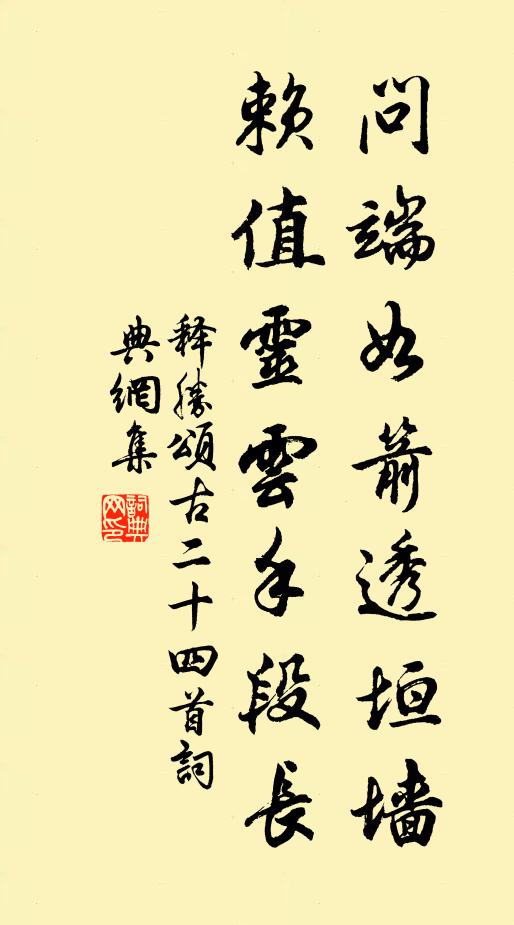 問端如箭透垣墙
賴值靈雲手段長
释勝頌古二十四首詞
典網集
詞典网印